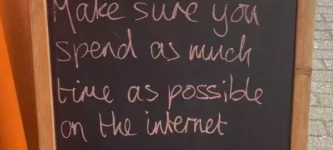 Make sure you
spend as much
time as possible
on the internet